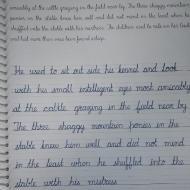 amicably at the cattle grazing in the field near by. The three shaggy mountain
ponies in the stable knew him well and did not mind in the least when he
shuffled into the stable with his mistress. The children used to ride on his back
and had more than once been found asleep
He used to sit out side his kennel and look
with his small intelligent eyes most amicably
at the cattle grazing in the field near by
The three shaggy mountain ponies in the
stable knew him well and did not mind
in the least when he shuffled into the
stable with his mistress